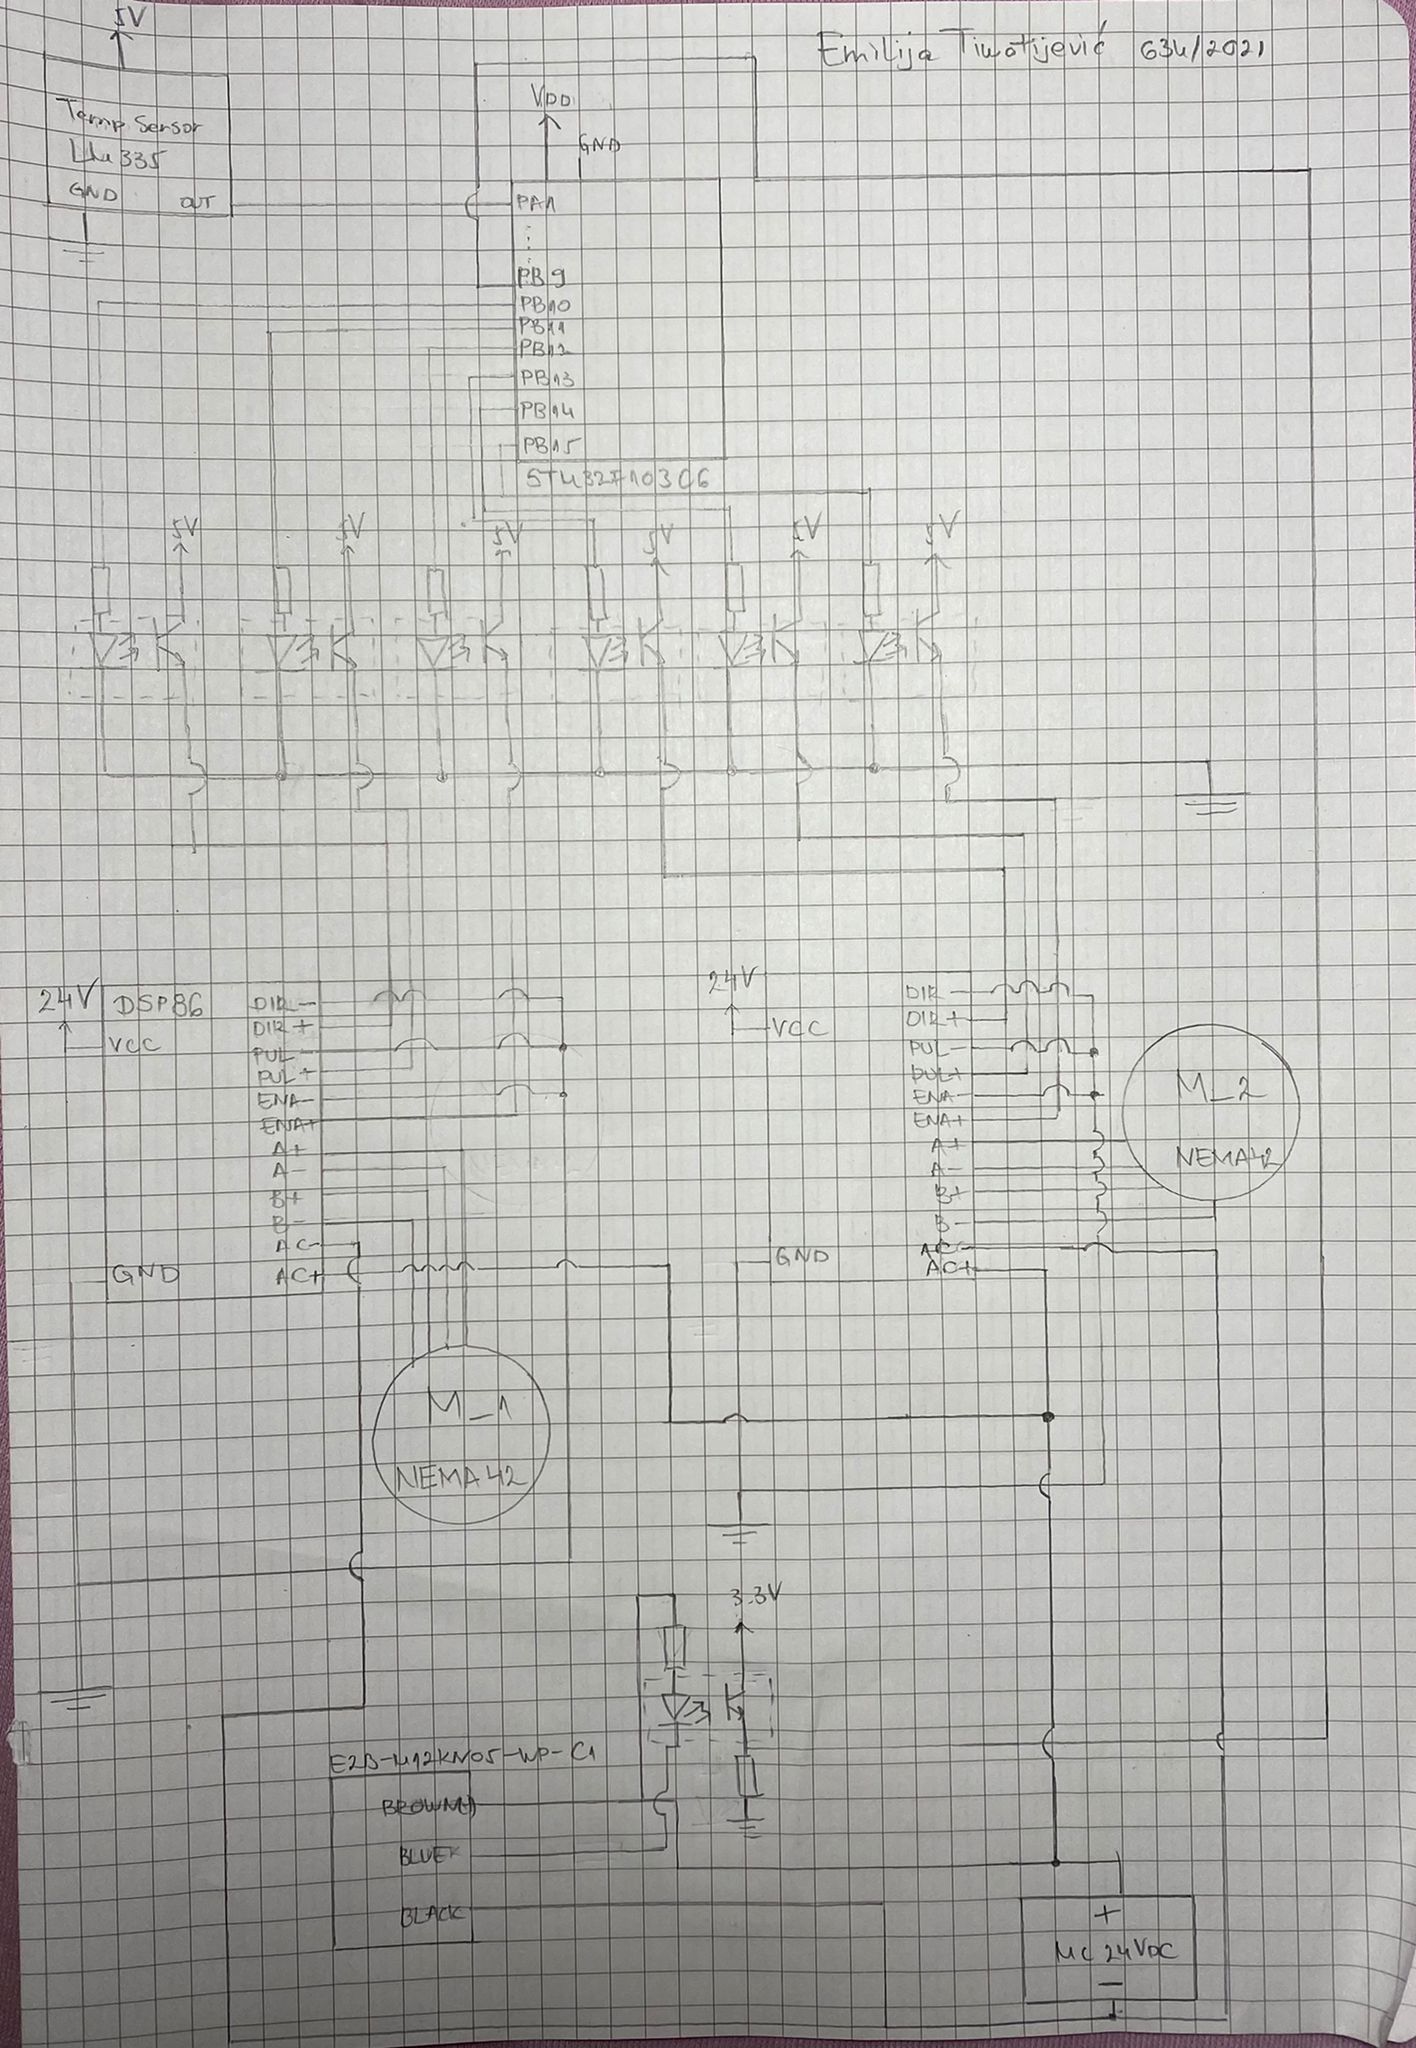 Emilija Timotijević 634/2021
5V
Temp Sensor
LM335
GND OUT
VDD
GND
PA1
PB9
PB10
PB11
PB12
PB13
PB14
PB15
STM32F103C6
5V 5V 5V 5V 5V 5V
24V DSP86
VCC
DIR-
DIR+
PUL-
PUL+
ENA-
ENA+
A+
A-
B+
B-
AC-
GND AC+
M_1
NEMA42
24V
VCC
DIR-
DIR+
PUL-
PUL+
ENA-
ENA+
A+
A-
B+
B-
AC-
GND
AC+
M_2
NEMA42
3.3V
E2B-M12KN05-WP-C1
BROWN
BLUE
BLACK
+
MC 24VDC
-